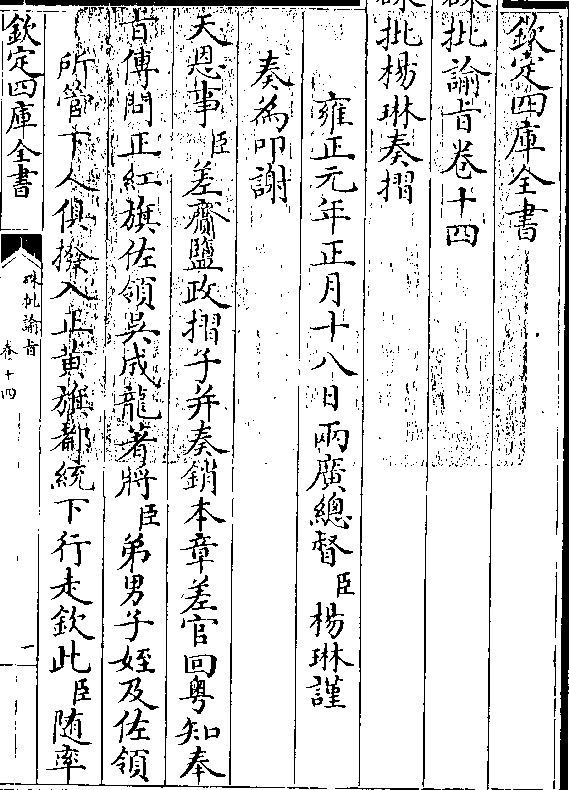 欽定四庫全書
硃批諭旨卷十四
硃批楊琳奏摺
雍正元年正月十八日兩廣總督臣楊琳謹
奏為叩謝
天恩事臣差齎鹽政摺子并奏銷本章差官回粤知奉
㫖傳問正紅旗佐領吳成龍著將臣弟男子姪及佐領
所管下人俱撥入正黄旗都統下行走欽此臣随率
欽定四庫全書
硃批諭旨
卷十四
一